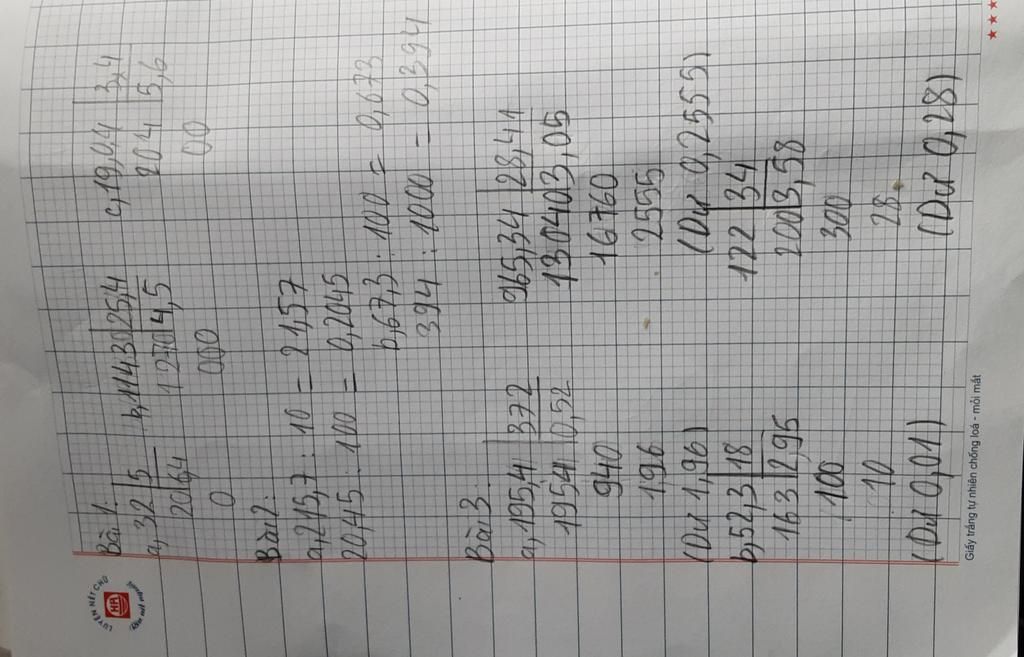 Bài 1.
a, 32 | 5 b, 1143 0 | 25,4 c, 19,0,4 | 3,4
20 6,4 1270 4,5 204 5,6
0 000 00
Bài 2.
a, 215,7 : 10 = 21,57
20,45 : 100 = 0,2045
b, 67,3 : 100 = 0,673
394 : 1000 = 0,394
Bài 3
a, 195,4 | 372 965,34 | 28,41
1954 0,52 130403,05
940 16760
196 2555
(Dư 1,96) (Dư 0,2555)
b, 52,3 | 18 122 | 34
163 2,95 200 3,58
100 300
10 28
(Dư 0,01) (Dư 0,28)
LUYỆN NÉT CHỮ
HA
Rèn nết người
Giấy trắng tự nhiên chống loá - mỏi mắt